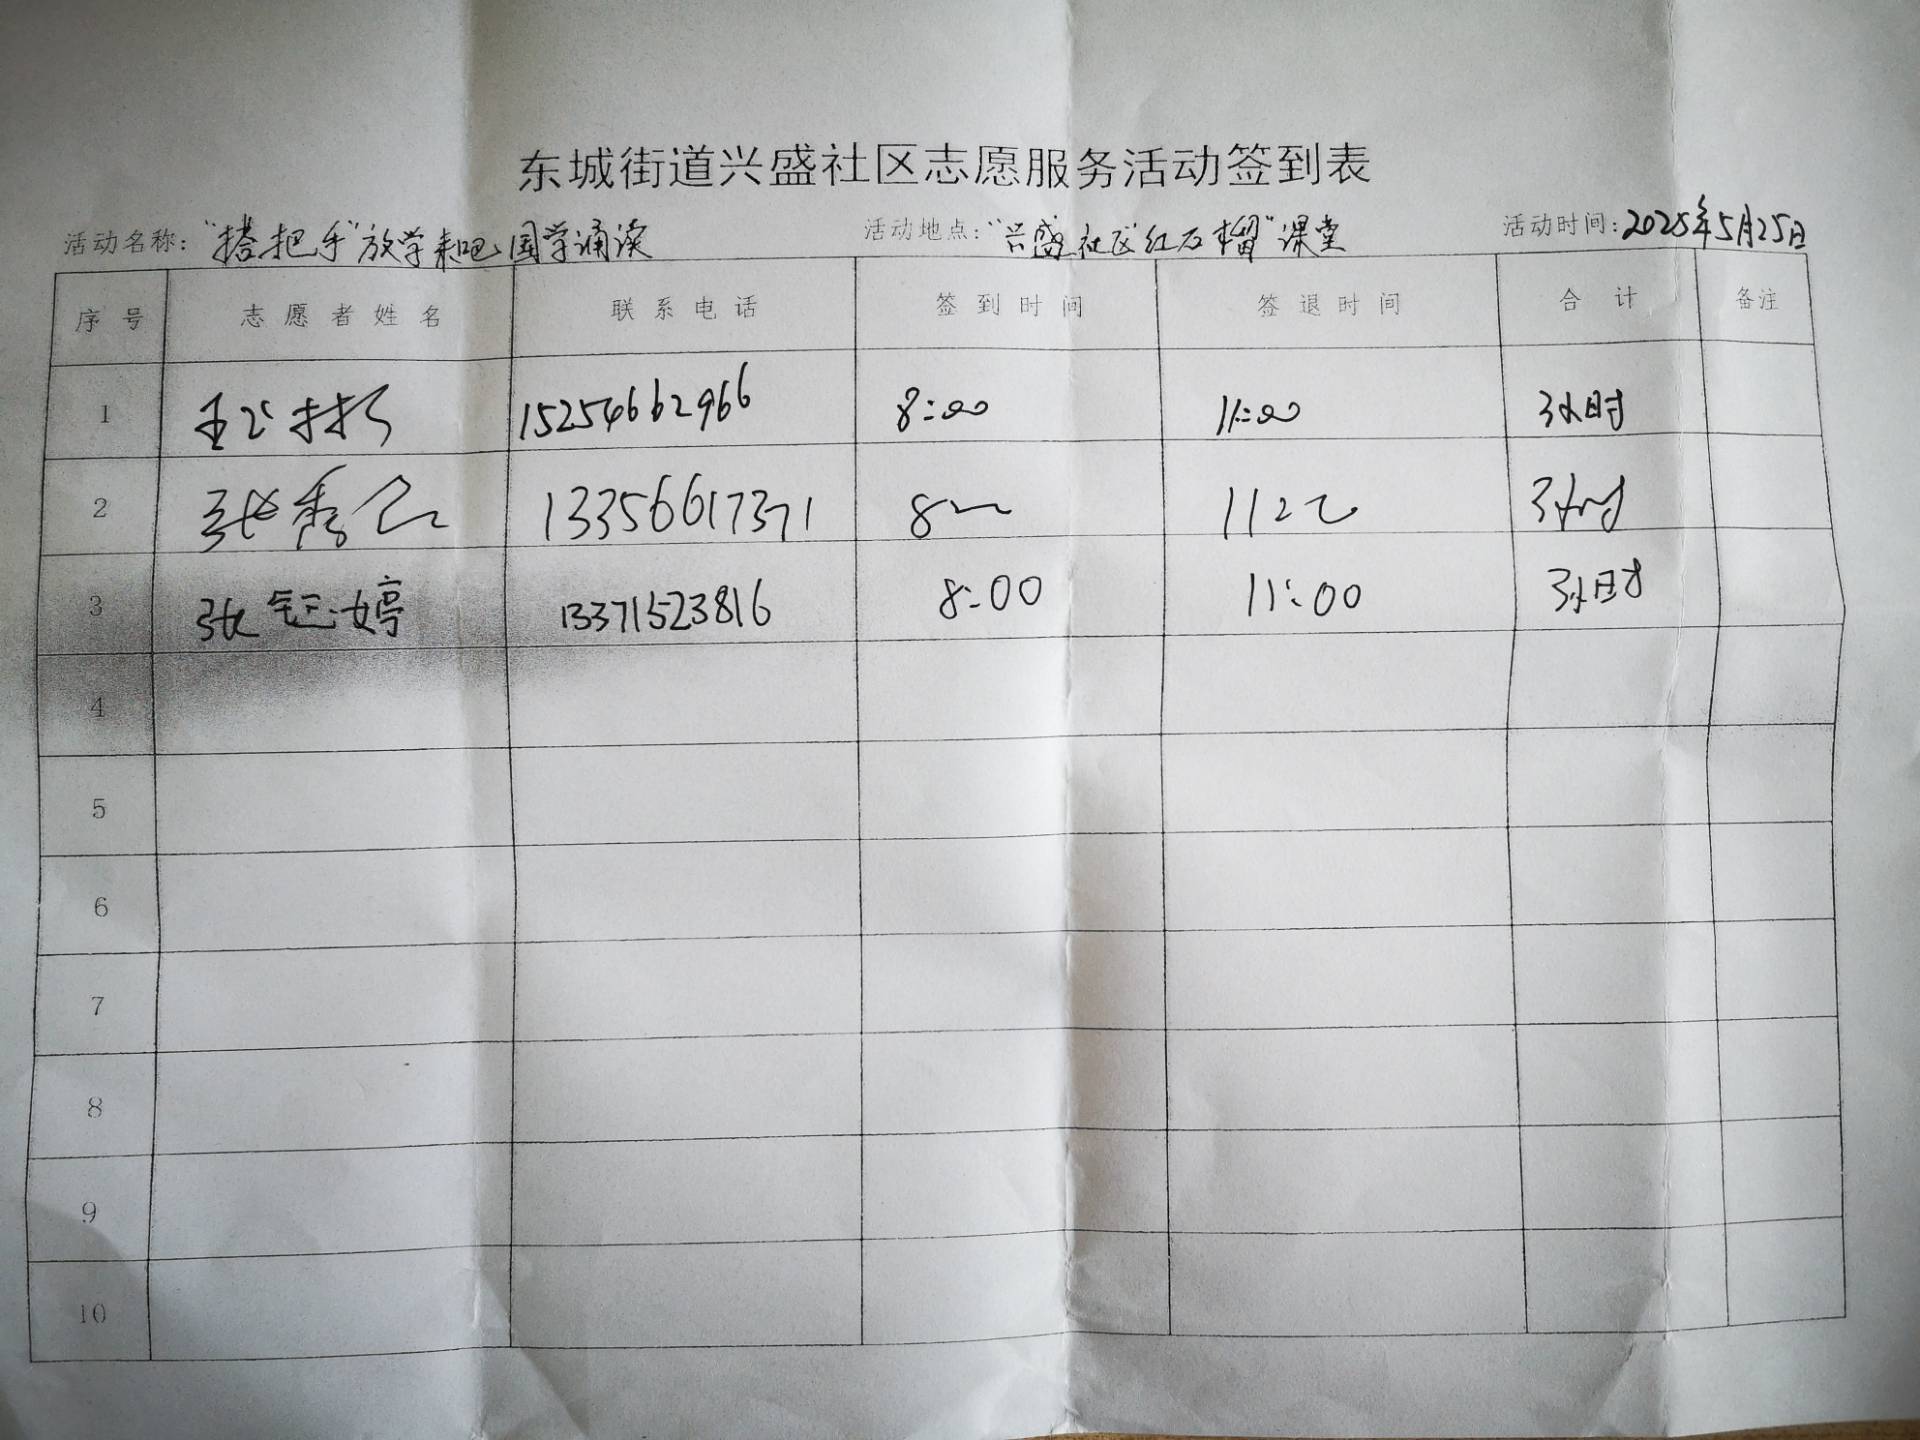 东城街道兴盛社区志愿服务活动签到表
活动名称："搭把手"放学来吧国学诵读 活动地点："兴盛社区红石榴"课堂 活动时间：2025年5月25日
序号 志愿者姓名 联系电话 签到时间 签退时间 合计 备注
1 15254662966 8:00 11:00 3小时
2 张秀 13356617371 8 11 3小时
3 张钰婷 13371523816 8:00 11:00 3小时
4
5
6
7
8
9
10